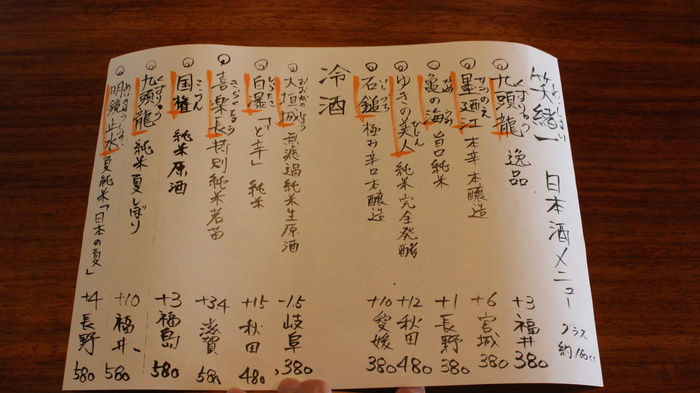 笑緒一 日本酒メニュー
グラス
約160cc
くずりゅう
九頭龍 逸品 +3 福井 380
墨廼江 本辛 本醸造 +6 宮城 380
亀の海 旨口純米 +1 長野 380
びじん
ゆきの美人 純米 完全発酵 +12 秋田 480
いしづち
石鎚 極み辛口 本醸造 +10 愛媛 380
冷酒
大垣城 無濾過純米生原酒 -1.5 岐阜 380
白瀑「ど辛」純米 +15 秋田 480
きらくちょう
喜楽長 特別純米 若苗 +3.4 滋賀 580
こっけん
国権 純米原酒 +3 福島 580
くずりゅう
九頭龍 純米 夏しぼり +10 福井 580
明鏡止水 夏純米「日本の夏」 +4 長野 580